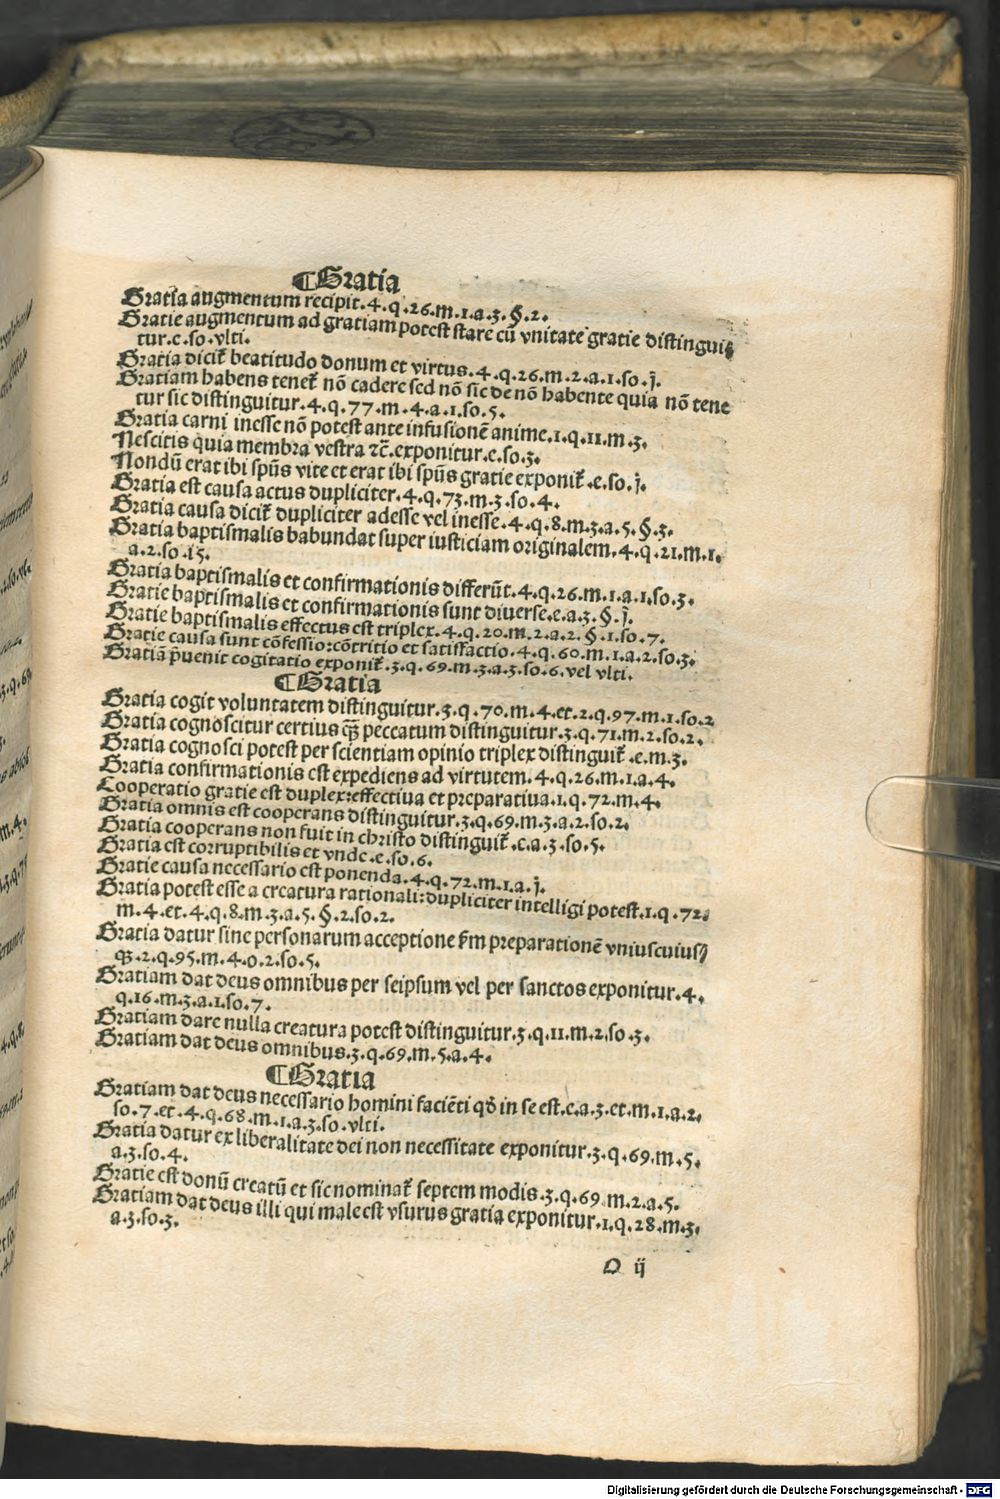 ¶Gratia
Gratia augmentum recipit.4.q.26.m.1.a.3.§.2.
Gratie augmentum ad gratiam potest stare cū vnitate gratie distingui⸗
tur.e.so.vlti.
Gratia dicit᷑ beatitudo donum et virtus.4.q.26.m.2.a.1.so.j.
Gratiam habens tenet᷑ nō cadere sed nō sic de nō habente quia nō tene
tur sic distinguitur.4.q.77.m.4.a.1.so.5.
Gratia carni inesse nō potest ante infusionē anime.1.q.11.m.3.
Nescitis quia membra vestra ⁊c̄.exponitur.e.so.3.
Nondū erat ibi spūs vite et erat ibi spūs gratie exponit᷑.e.so.j.
Gratia est causa actus dupliciter.4.q.73.m.3.so.4.
Gratia causa dicit᷑ dupliciter adesse vel inesse.4.q.8.m.3.a.5.§.3.
Gratia baptismalis babundat super iusticiam originalem.4.q.21.m.1.
a.2.so.15.
Gratia baptismalis et confirmationis differūt.4.q.26.m.1.a.1.so.3.
Gratie baptismalis et confirmationis sunt diuerse.e.a.3.§.j.
Gratie baptismalis effectus est triplex.4.q.20.m.2.a.2.§.1.so.7.
Gratie causa sunt cōfessio:cōtritio et satisfactio.4.q.60.m.1.a.2.so.3.
Gratiā p̄uenit cogitatio exponit᷑.3.q.69.m.3.a.3.so.6.vel vlti.
¶Gratia
Gratia cogit voluntatem distinguitur.3.q.70.m.4.et.2.q.97.m.1.so.2
Gratia cognoscitur certius q̄ꝫ peccatum distinguitur.3.q.71.m.2.so.2.
Gratia cognosci potest per scientiam opinio triplex distinguit᷑.e.m.3.
Gratia confirmationis est expediens ad virtutem.4.q.26.m.1.a.4.
Cooperatio gratie est duplex:effectiua et preparatiua.1.q.72.m.4.
Gratia omnis est cooperans distinguitur.3.q.69.m.3.a.2.so.2.
Gratia cooperans non fuit in christo distinguit᷑.e.a.3.so.5.
Gratia est corruptibilis et vnde.e.so.6.
Gratie causa necessario est ponenda.4.q.72.m.1.a.j.
Gratia potest esse a creatura rationali:dupliciter intelligi potest.1.q.72.
m.4.et.4.q.8.m.3.a.5.§.2.so.2.
Gratia datur sine personarum acceptione s̄m preparationē vniuscuius⸗
qꝫ.2.q.95.m.4.o.2.so.5.
Gratiam dat deus omnibus per seipsum vel per sanctos exponitur.4.
q.16.m.3.a.1.so.7.
Gratiam dare nulla creatura potest distinguitur.3.q.11.m.2.so.3.
Gratiam dat deus omnibus.3.q.69.m.5.a.4.
¶Gratia
Gratiam dat deus necessario homini faciēti qđ in se est.e.a.3.et.m.1.a.2.
so.7.et.4.q.68.m.1.a.3.so.vlti.
Gratia datur ex liberalitate dei non necessitate exponitur.3.q.69.m.5.
a.3.so.4.
Gratie est donū creatū et sic nominat᷑ septem modis.3.q.69.m.2.a.5.
Gratiam dat deus illi qui male est vsurus gratia exponitur.1.q.28.m.3.
a.3.so.3.
O ij
Digitalisierung gefördert durch die Deutsche Forschungsgemeinschaft - DFG